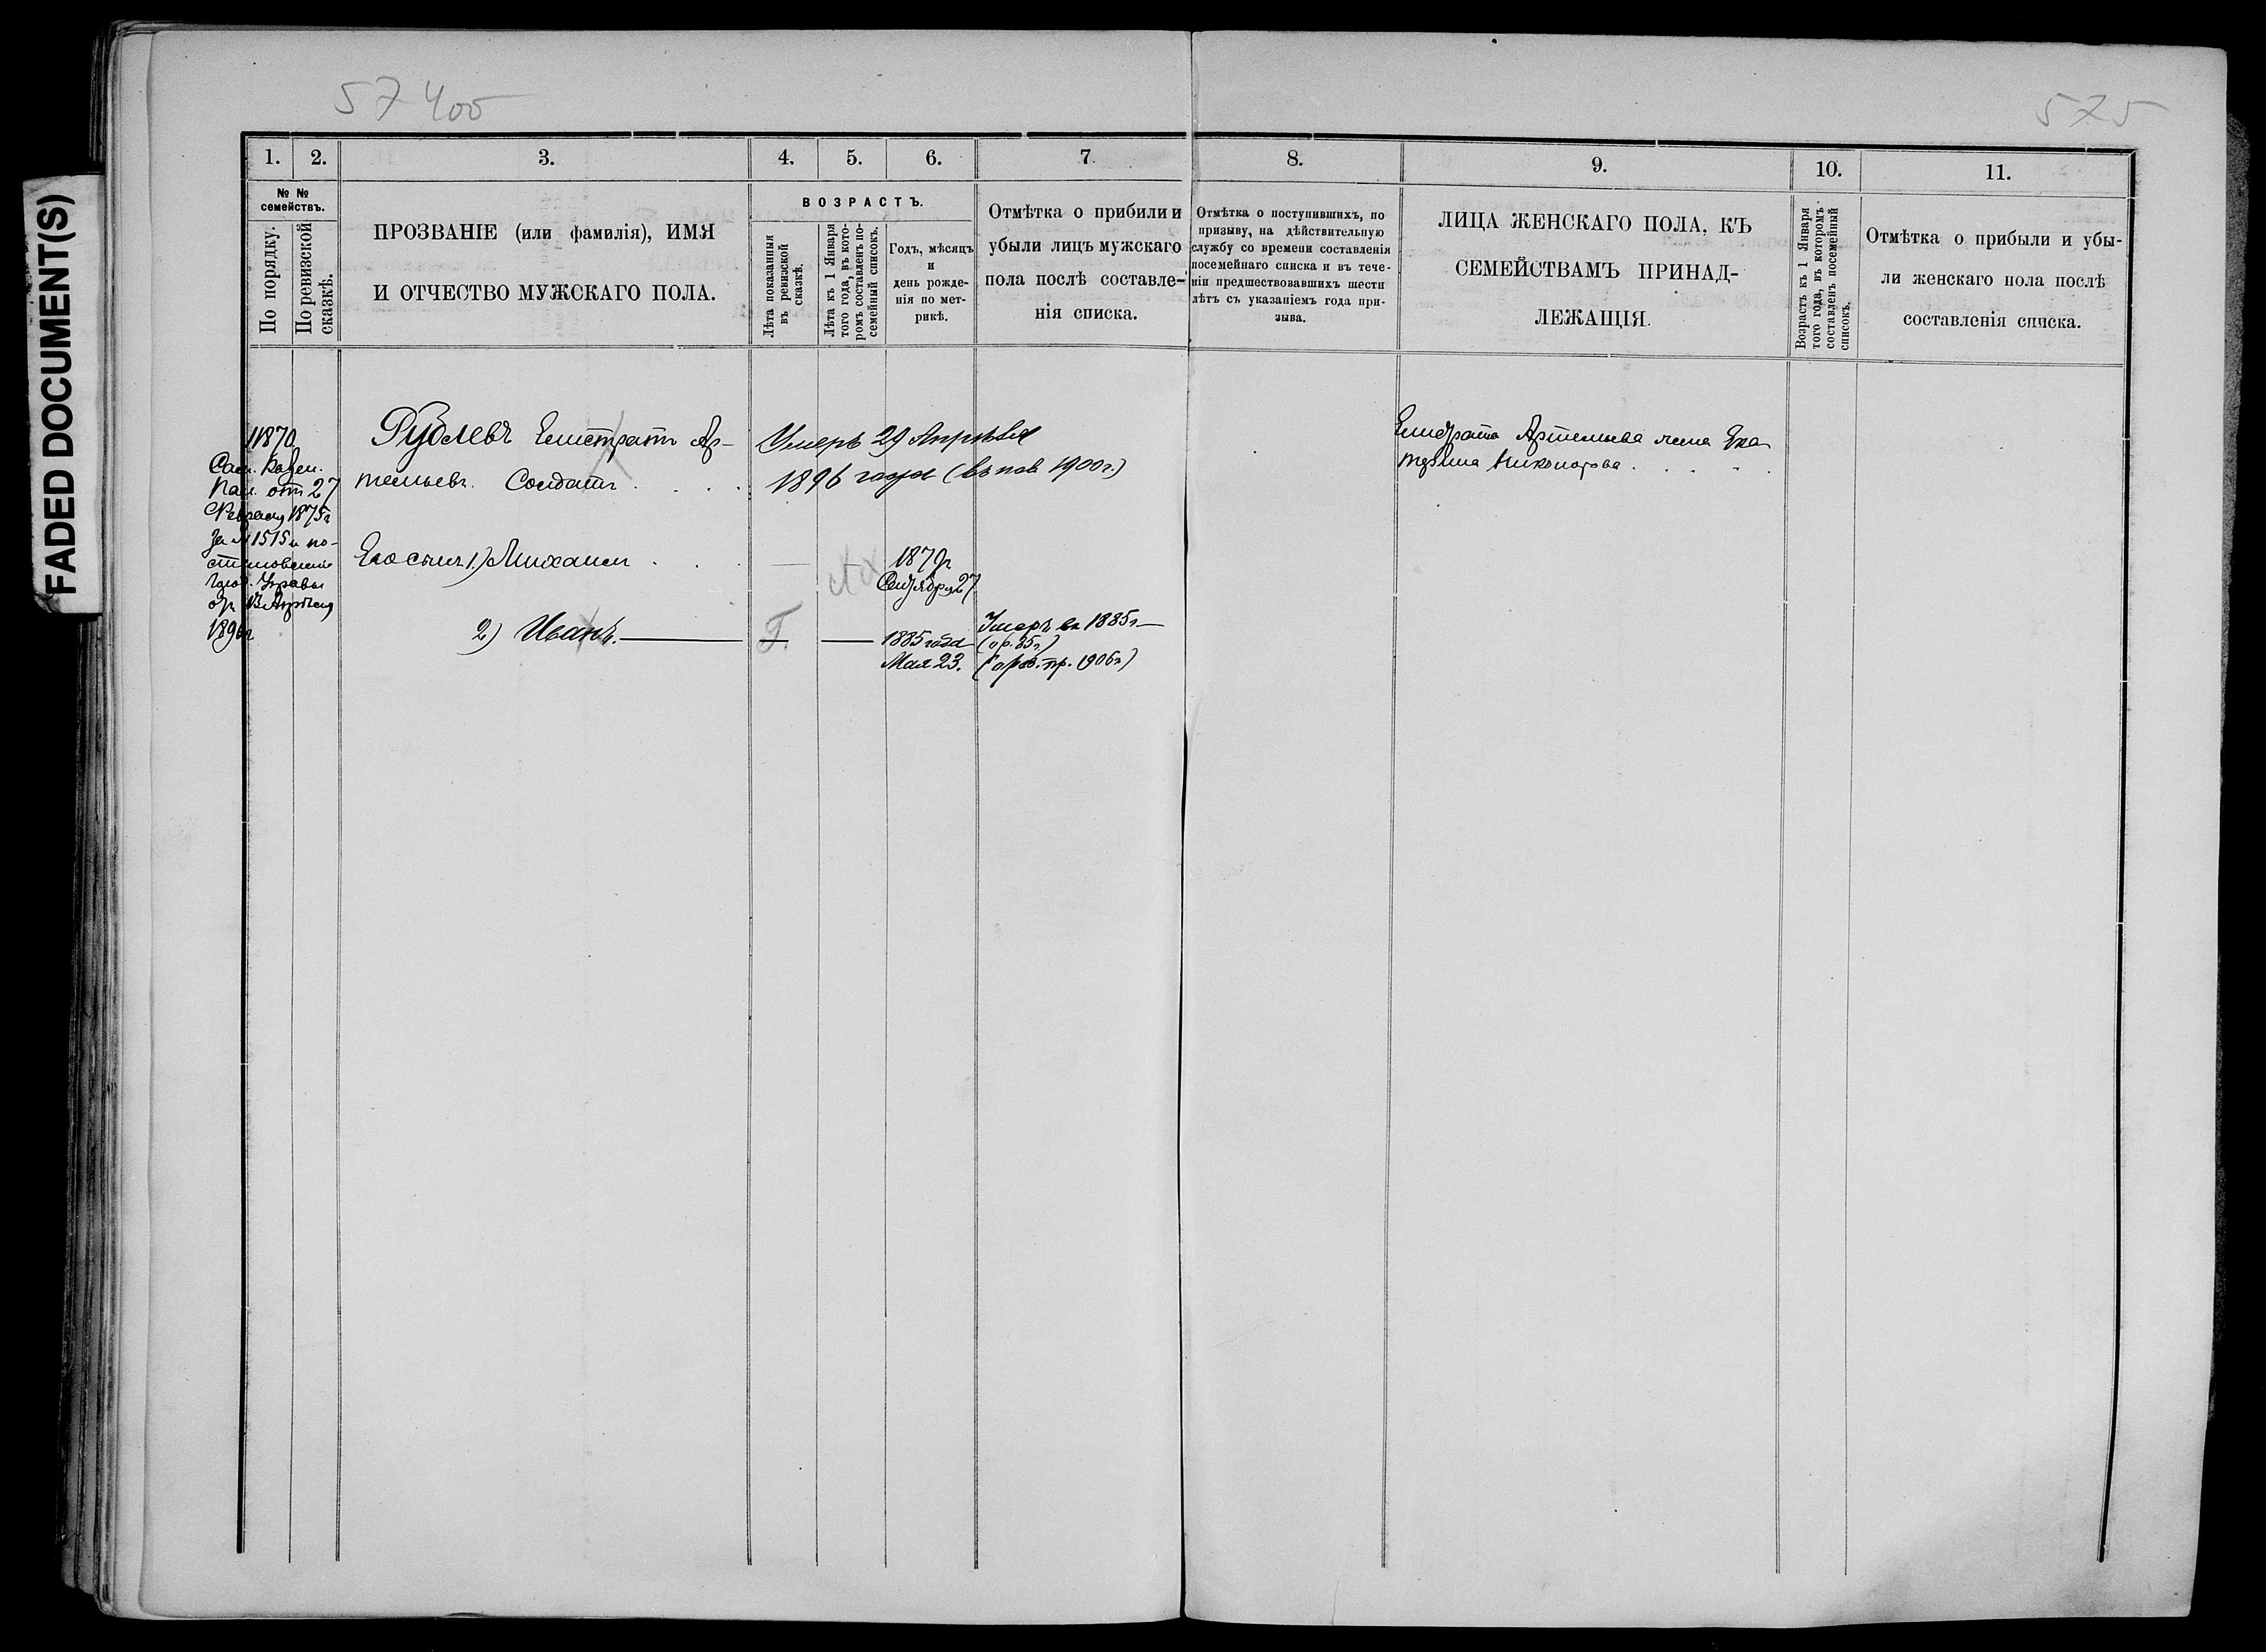 FADED DOCUMENT(S)
57 400
575
1. 2. 3. 4. 5. 6. 7. 8. 9. 10. 11.
№ №
семействъ.
По порядку.
По ревизской
сказкѣ.
ПРОЗВАНІЕ (или фамилія), ИМЯ
И ОТЧЕСТВО МУЖСКАГО ПОЛА.
ВОЗРАСТЪ.
Лѣта показанныя
въ ревизской
сказкѣ.
Лѣта къ 1 Января
того года, въ кото-
ромъ составленъ по-
семейный списокъ.
Годъ, мѣсяцъ
и
день рожде-
нія по мет-
рикѣ.
Отмѣтка о прибыли и
убыли лицъ мужскаго
пола послѣ составле-
нія списка.
Отмѣтка о поступившихъ, по
призыву, на дѣйствительную
службу со времени составленія
посемейнаго списка и въ тече-
ніи предшествовавшихъ шести
лѣтъ съ указаніемъ года при-
зыва.
ЛИЦА ЖЕНСКАГО ПОЛА, КЪ
СЕМЕЙСТВАМЪ ПРИНАД-
ЛЕЖАЩІЯ.
Возрастъ къ 1 Января
того года, въ которомъ
составленъ посемейный
списокъ.
Отмѣтка о прибыли и убы-
ли женскаго пола послѣ
составленія списка.
11870
Сам. Казен.
Пал. отъ 27
Февраля 1875г
за № 1515 и по-
становленіе
Город. Управы
от 13 Апрѣля
1896г
Рублевъ Елистратъ Ар-
темьевъ. Солдатъ
Умеръ 29 Апрѣля
1896 года (въ пов 1900г.)
Елистрата Артемьева жена Ека
терина Никонорова
Его сынъ 1.) Михаилъ
1879г
Сентября 27
2) Иванъ.
1885 года
Мая 23.
Умеръ въ 1885г
(ор. 85г)
пр. 1906г)